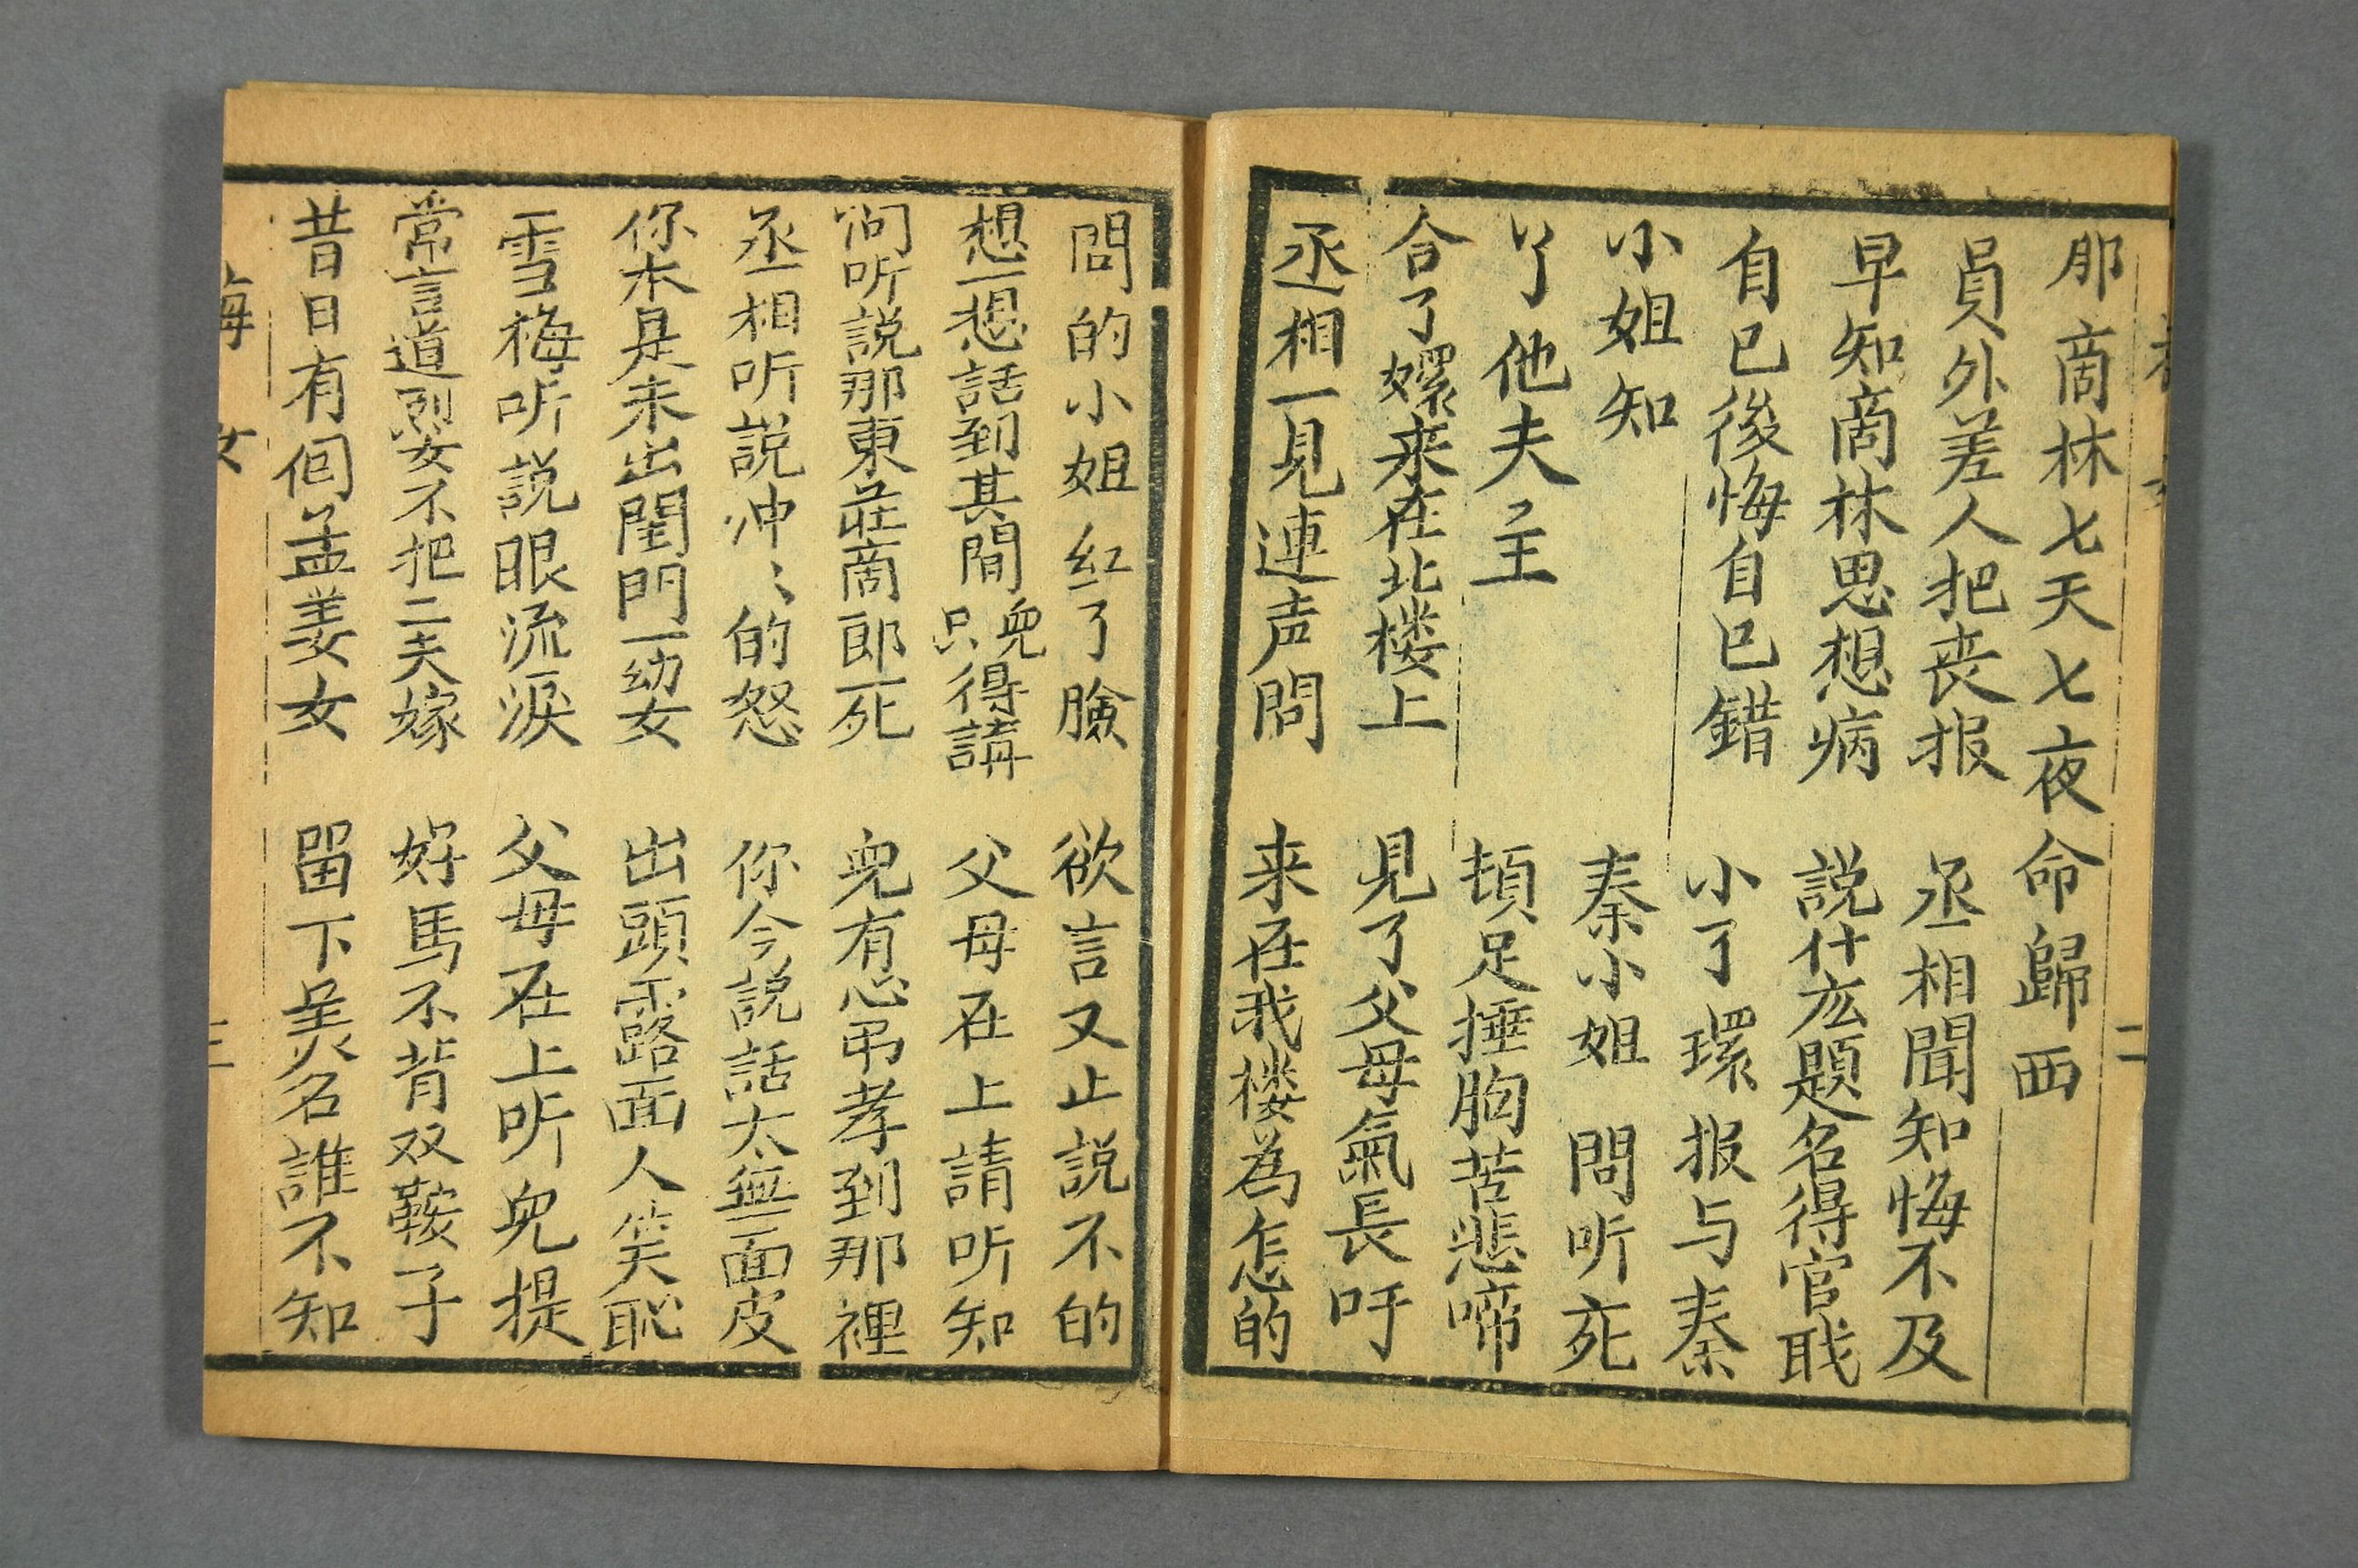 那商林七天七夜命歸西
員外差人把丧报　丞相聞知悔不及
早知商林思想病　説什広題名得官戝
自已後悔自已錯　小了環报与秦
小姐知　秦小姐問听死
丫他夫主　頓足捶胸苦悲啼
合了嬛来在北楼上　見了父母氣長吁
丞相一見連声問　来在我楼為怎的
問的小姐紅了臉　欲言又止説不的
想一想話到其間只得講　父母在上請听知
向听説那東莊商郎死　兒有心弔孝到那裡
丞相听説冲冲的怒　你今説話太無面皮
你本是未出閨門一幼女　出頭露面人笑恥
雪梅听説眼流淚　父母在上听兒提
常言道烈女不把二夫嫁　好馬不背双鞍子
昔日有個孟姜女　留下美名誰不知